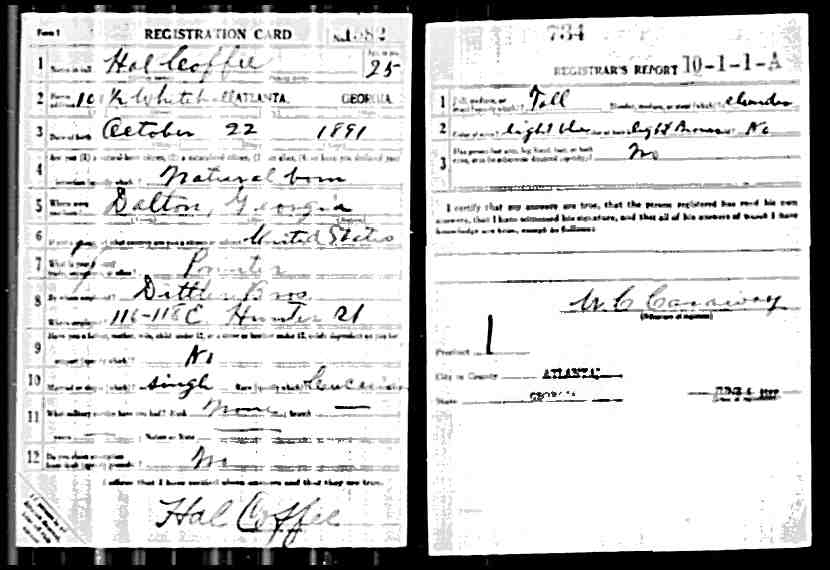 Form 1 REGISTRATION CARD No. 1582
1 Name in full Hal Coffee Age, in yrs. 25
2 Home address 10 1/2 Whitehall ATLANTA, GEORGIA.
3 Date of birth October 22 1891
4 Are you (1) a natural-born citizen, (2) a naturalized citizen, (3) an alien, (4) or have you declared your
intention (specify which)? Natural born
5 Where were you born? Dalton, Georgia
6 If not a citizen, of what country are you a citizen or subject? United States
7 What is your present trade, occupation, or office? Printer
8 By whom employed? Dittler Bros
Where employed? 116-118 E Hunter St
9 Have you a father, mother, wife, child under 12, or a sister or brother under 12, solely dependent on you for
support (specify which)? No
10 Married or single (which)? Single Race (specify which)? Caucasian
11 What military service have you had? Rank None ; branch —
years — ; Nation or State
12 Do you claim exemption from draft (specify grounds)? No
I affirm that I have verified above answers and that they are true.
Hal Coffee
734
REGISTRAR'S REPORT 10-1-1-A
1 Tall, medium, or short (specify which)? Tall Slender, medium, or stout (which)? Slender
2 Color of eyes? Light blue Color of hair? Light Brown Bald? No
3 Has person lost arm, leg, hand, foot, or both eyes, or is he otherwise disabled (specify)? No
I certify that my answers are true, that the person registered has read his own
answers, that I have witnessed his signature, and that all of his answers of which I have
knowledge are true, except as follows:
W C Caraway
(Signature of registrar)
Precinct 1
City or County ATLANTA,
State GEORGIA JUNE 5 1917